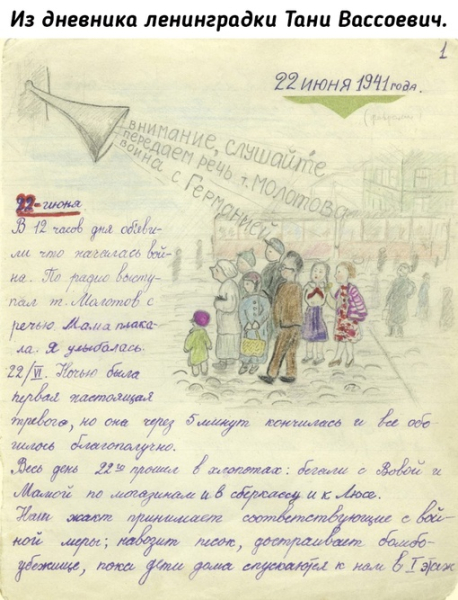 Из дневника ленинградки Тани Вассоевич.
1
22 ИЮНЯ 1941 ГОДА.
ВНИМАНИЕ, СЛУШАЙТЕ
ПЕРЕДАЕМ РЕЧЬ т. МОЛОТОВА
ВОЙНА С ГЕРМАНИЕЙ
22-июня
В 12 часов дня объяви-
ли что началась вой-
на. По радио высту-
пал т. Молотов с
речью. Мама плака-
ла. Я улыбалась.
22/VI. Ночью была
первая настоящая
тревога, но она через 5 минут кончилась и все обо-
шлось благополучно.
Весь день 22го прошел в хлопотах: бегали с Вовой и
Мамой по магазинам и в сберкассу и к Люсе.
Наш жакт принимает соответствующие с вой-
ной меры; навозит песок, достраивает бомбо-
убежище, пока дети дома спускаются к нам в I этаж